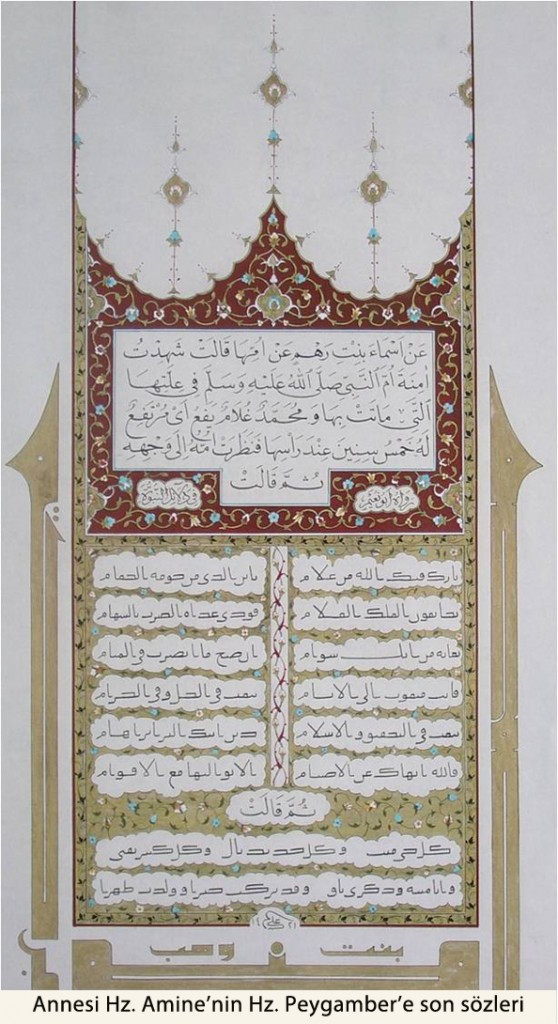 عَنْ اَسْمَاءَ بِنْتِ رَهْمٍ عَنْ اُمِّهَا قَالَتْ شَهِدْتُ
اٰمِنَةَ اُمَّ النَّبِيِّ صَلَّى اللهُ عَلَيْهِ وَسَلَّمَ فِي عِلَّتِهَا
الَّتِي مَاتَتْ بِهَا وَمُحَمَّدٌ غُلَامٌ يَفَعٌ اَيْ مُرْتَفِعٌ
لَهُ خَمْسُ سِنِينَ عِنْدَ رَأْسِهَا فَنَظَرَتْ اُمُّهُ اِلَى وَجْهِهِ
ثُمَّ قَالَتْ
رواه ابو نعيم في دلائل النبوة
بارك فيك الله من غلام يا ابن الذي من حومة الحمام
نجا بعون الملك العلام فودي غداة الضرب بالسهام
بمائة من ابل سوام ان صح ما ابصرت في المنام
فانت مبعوث الى الانام تبعث في الحل وفي الحرام
تبعث في التحقيق والاسلام دين ابيك البر ابراهام
فالله انهاك عن الاصنام ان لا تواليها مع الاقوام
ثُمَّ قَالَتْ
كل حي ميت وكل جديد بال وكل كبير يفنى
وانا ميتة وذكري باق وقد تركت خيرا وولدت طهرا
بنت وهب
Annesi Hz. Amine’nin Hz. Peygamber’e son sözleri